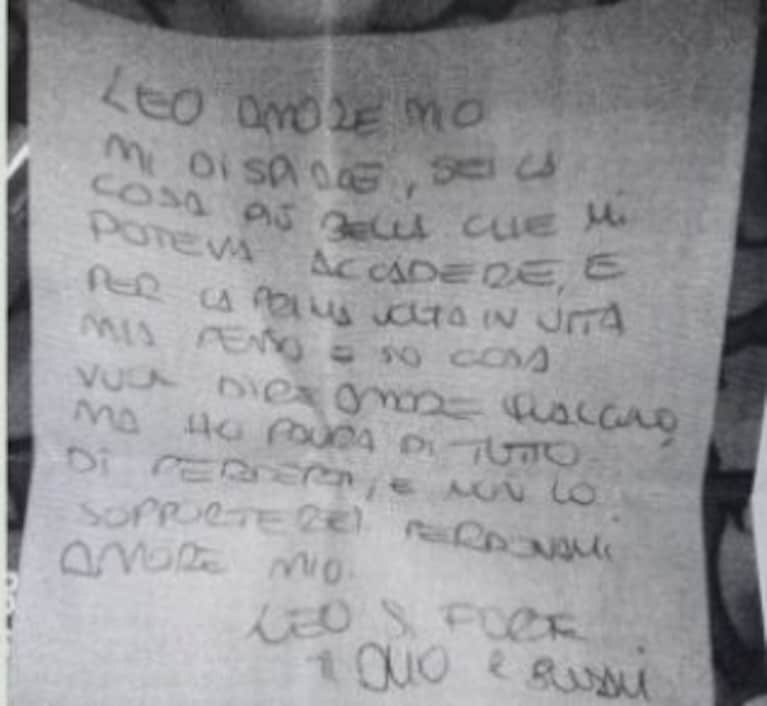 LEO AMORE MIO
MI DISPIACE, SEI LA
COSA PIÙ BELLA CHE MI
POTEVA ACCADERE, E
PER LA PRIMA VOLTA IN VITA
MIA PENSO E SO COSA
VUOL DIRE AMARE QUALCUNO
MA HO PAURA DI TUTTO
DI PERDERTI, E NON LO
SOPPORTEREI PERDONAMI
AMORE MIO.
LEO SI FORTE
TI AMO E